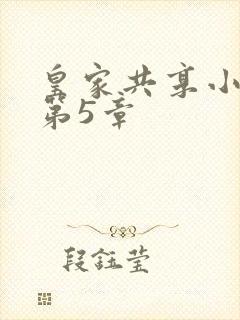 皇家共享小
第5章
段钰莹